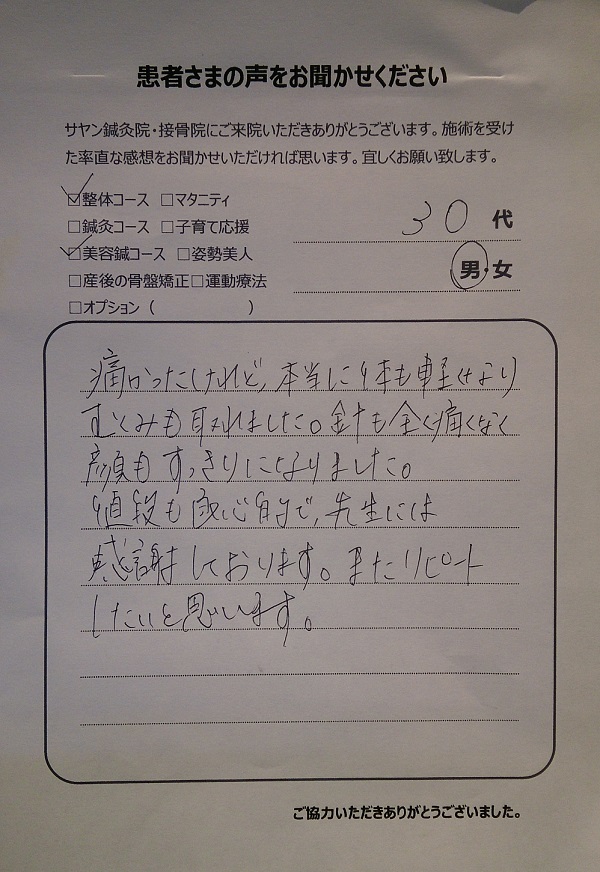 患者さまの声をお聞かせください
サヤン鍼灸院・接骨院にご来院いただきありがとうございます。施術を受け
た率直な感想をお聞かせいただければ思います。宜しくお願い致します。
☑整体コース □マタニティ
□鍼灸コース □子育て応援
☑美容鍼コース □姿勢美人
□産後の骨盤矯正□運動療法
□オプション（　　　　　　）
30 代
男・女
痛かったけれど、本当に体も軽くなり
むくみも取れました。針も全く痛くなく
顔もすっきりになりました。
値段も良心的で、先生には
感謝しております。またリピート
したいと思います。
ご協力いただきありがとうございました。